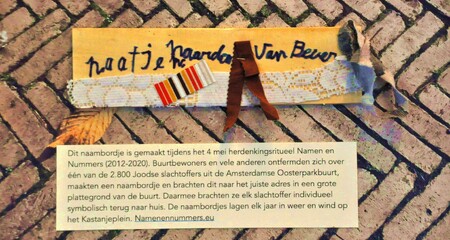 naatje naarden Van Bever
Dit naambordje is gemaakt tijdens het 4 mei herdenkingsritueel Namen en
Nummers (2012-2020). Buurtbewoners en vele anderen ontfermden zich over
één van de 2.800 Joodse slachtoffers uit de Amsterdamse Oosterparkbuurt,
maakten een naambordje en brachten dit naar het juiste adres in een grote
plattegrond van de buurt. Daarmee brachten ze elk slachtoffer individueel
symbolisch terug naar huis. De naambordjes lagen elk jaar in weer en wind op
het Kastanjeplein. Namenennummers.eu